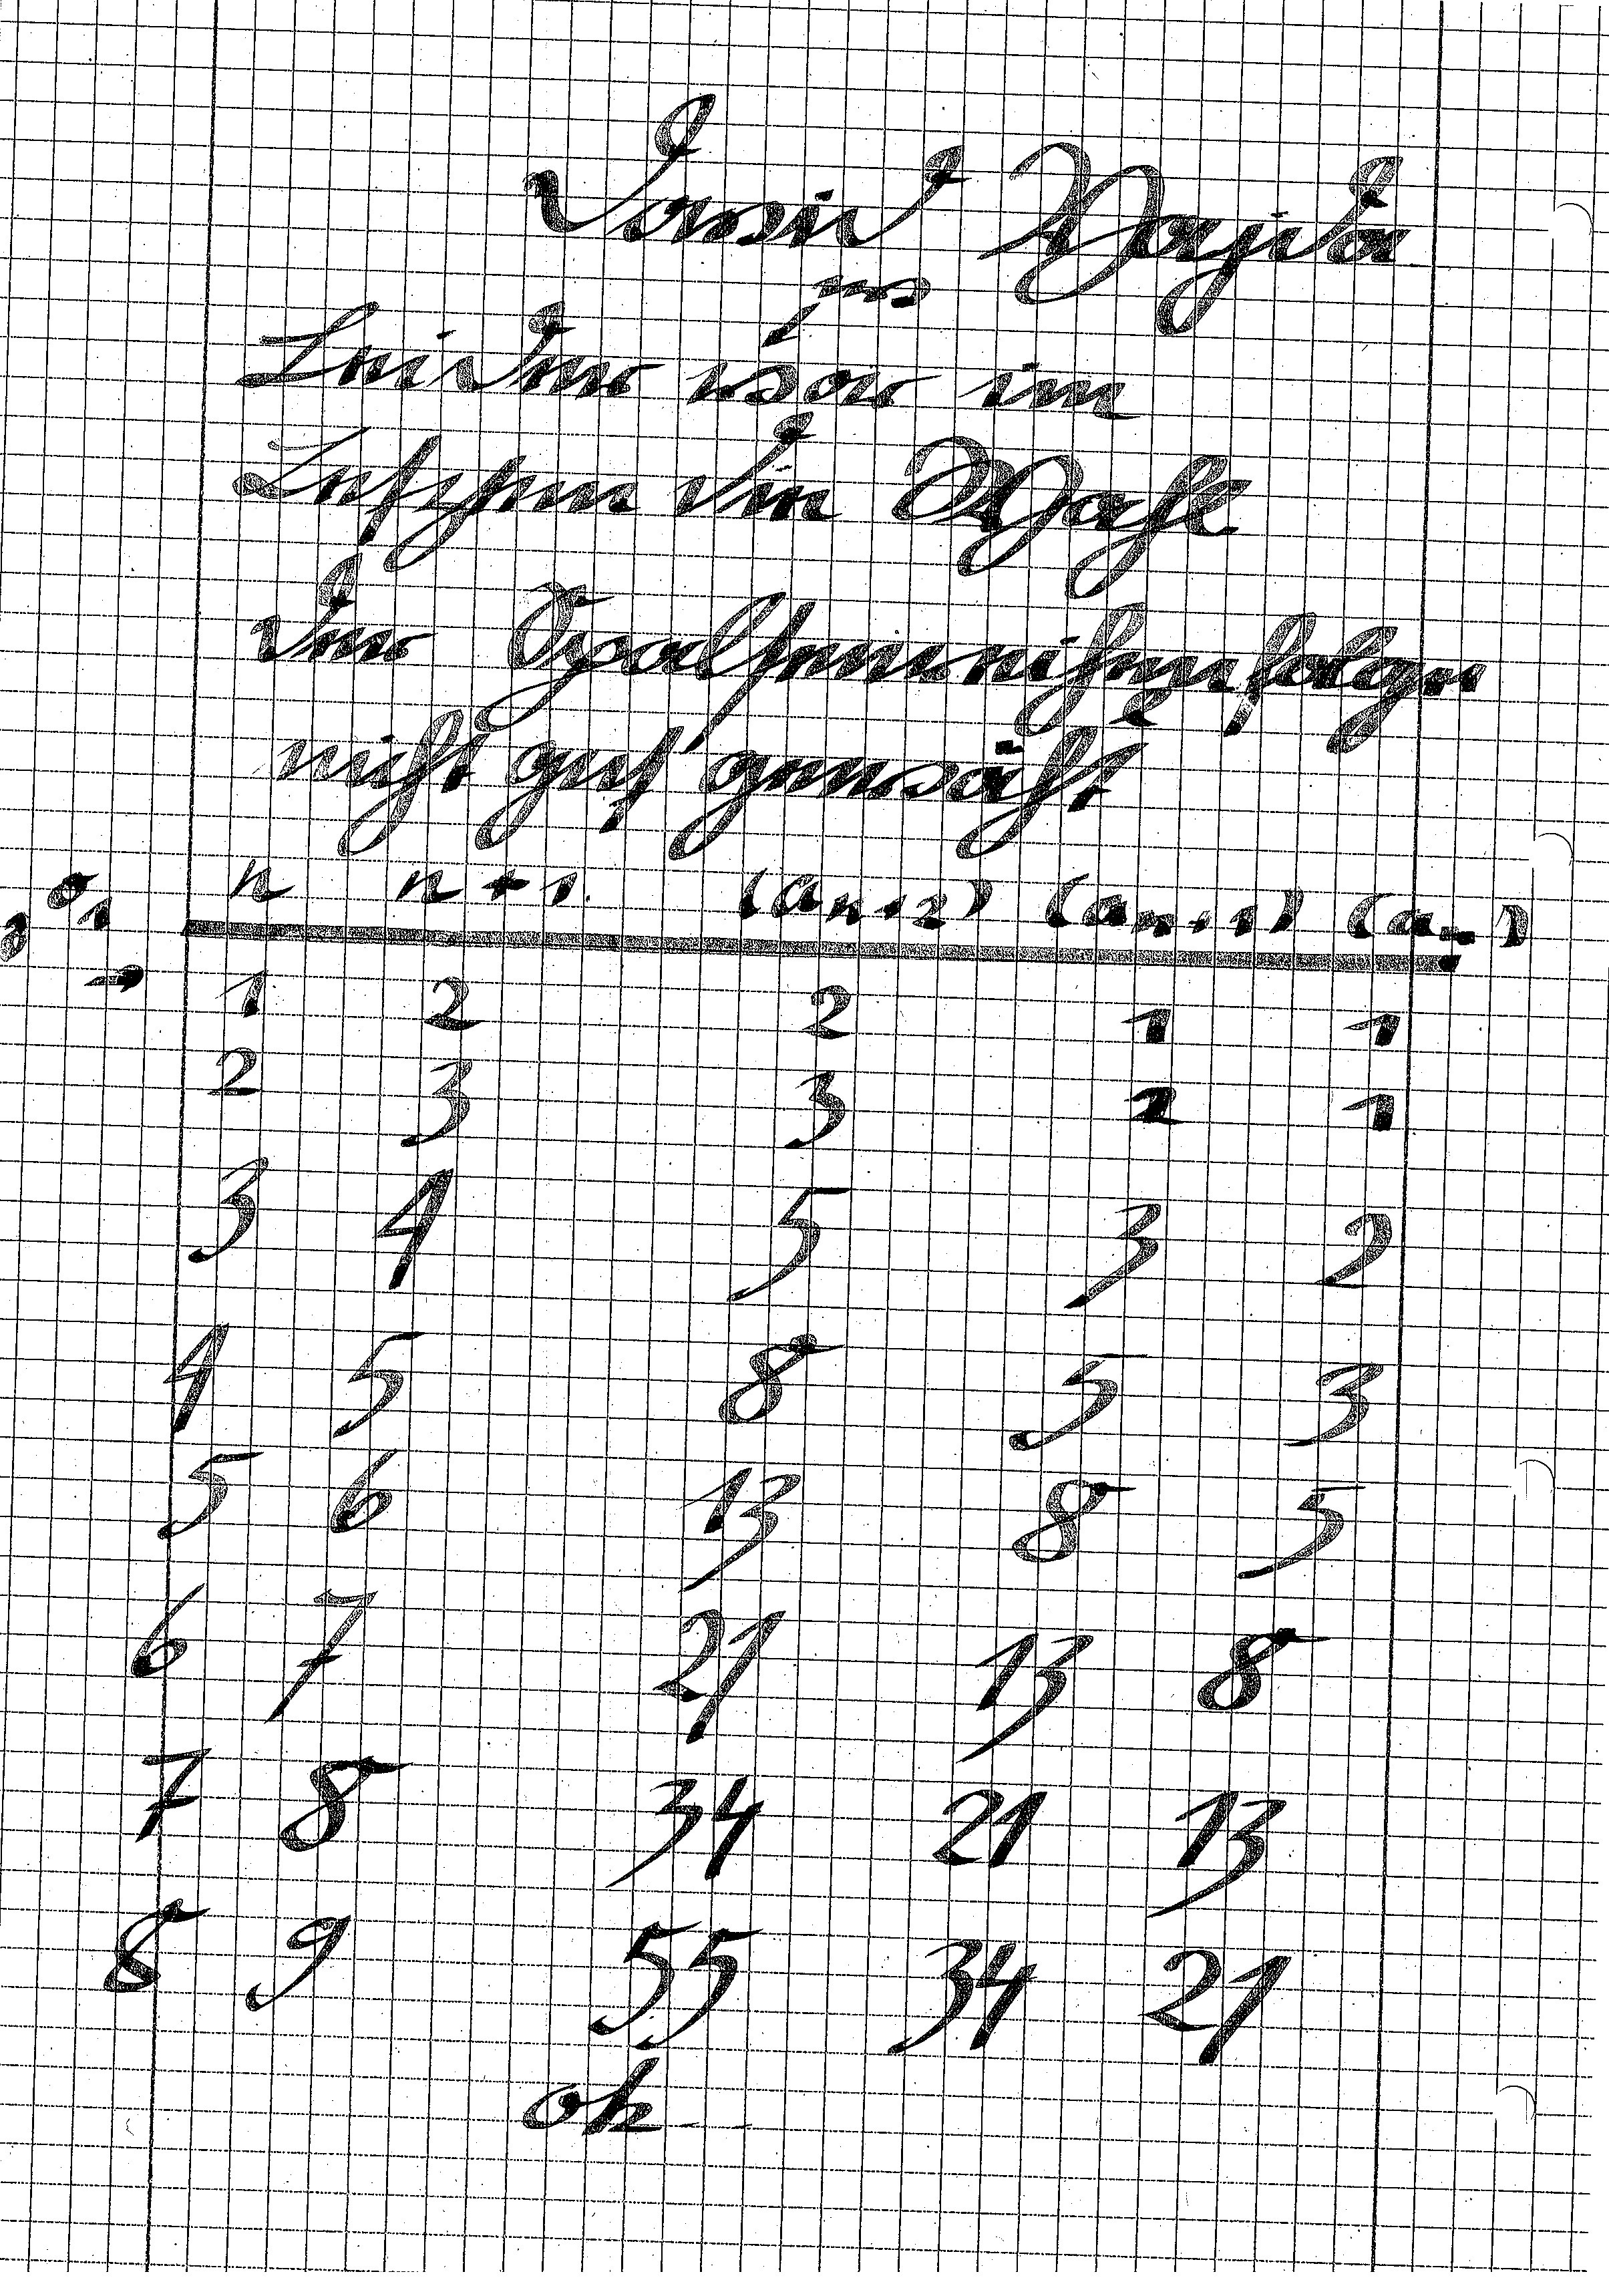 Dawid Wajda
Leider war im
die Wahl
der Spaltenreihenfolge
nicht gut gewählt
n n+1. (aₙ₊₂) (aₙ₊₁) (aₙ)
→ 1 2 2 1 1
2 3 3 2 1
3 4 5 3 2
4 5 8 5 3
5 6 13 8 5
6 7 21 13 8
7 8 34 21 13
8 9 55 34 21
ok